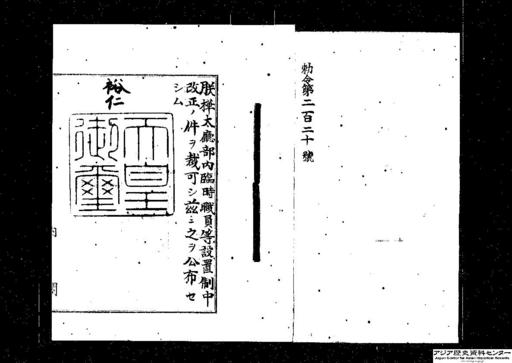 勅令第二百二十號
朕樺太廳部内臨時職員等設置制中
改正ノ件ヲ裁可シ茲ニ之ヲ公布セ
シム
裕仁
天皇
御璽
内閣
アジア歴史資料センター
Japan Center for Asian Historical Records